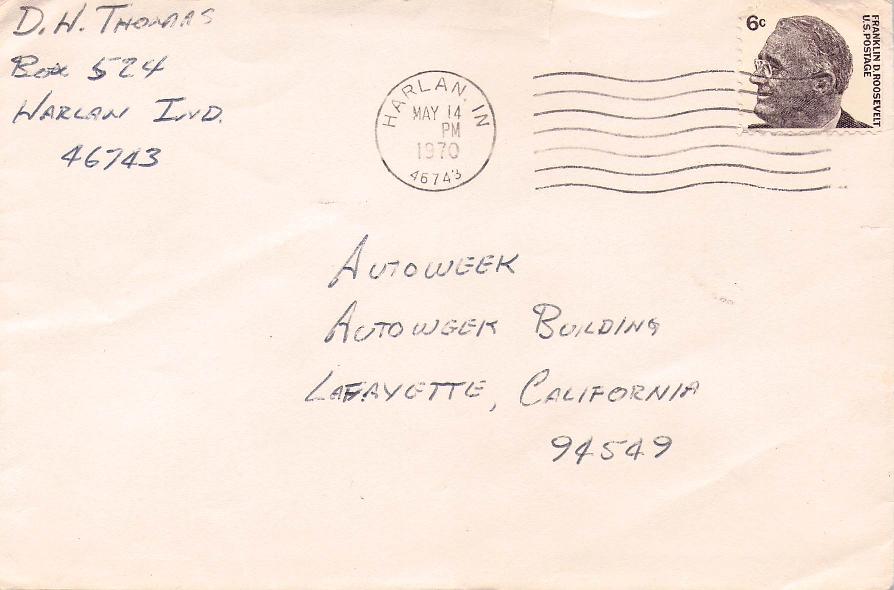 D. W. Thomas
Box 524
Harlan Ind.
46743
HARLAN, IN
MAY 14
PM
1970
46743
6c
FRANKLIN D. ROOSEVELT
U.S. POSTAGE
AUTOWEEK
AUTOWEEK BUILDING
LAFAYETTE, CALIFORNIA
94549